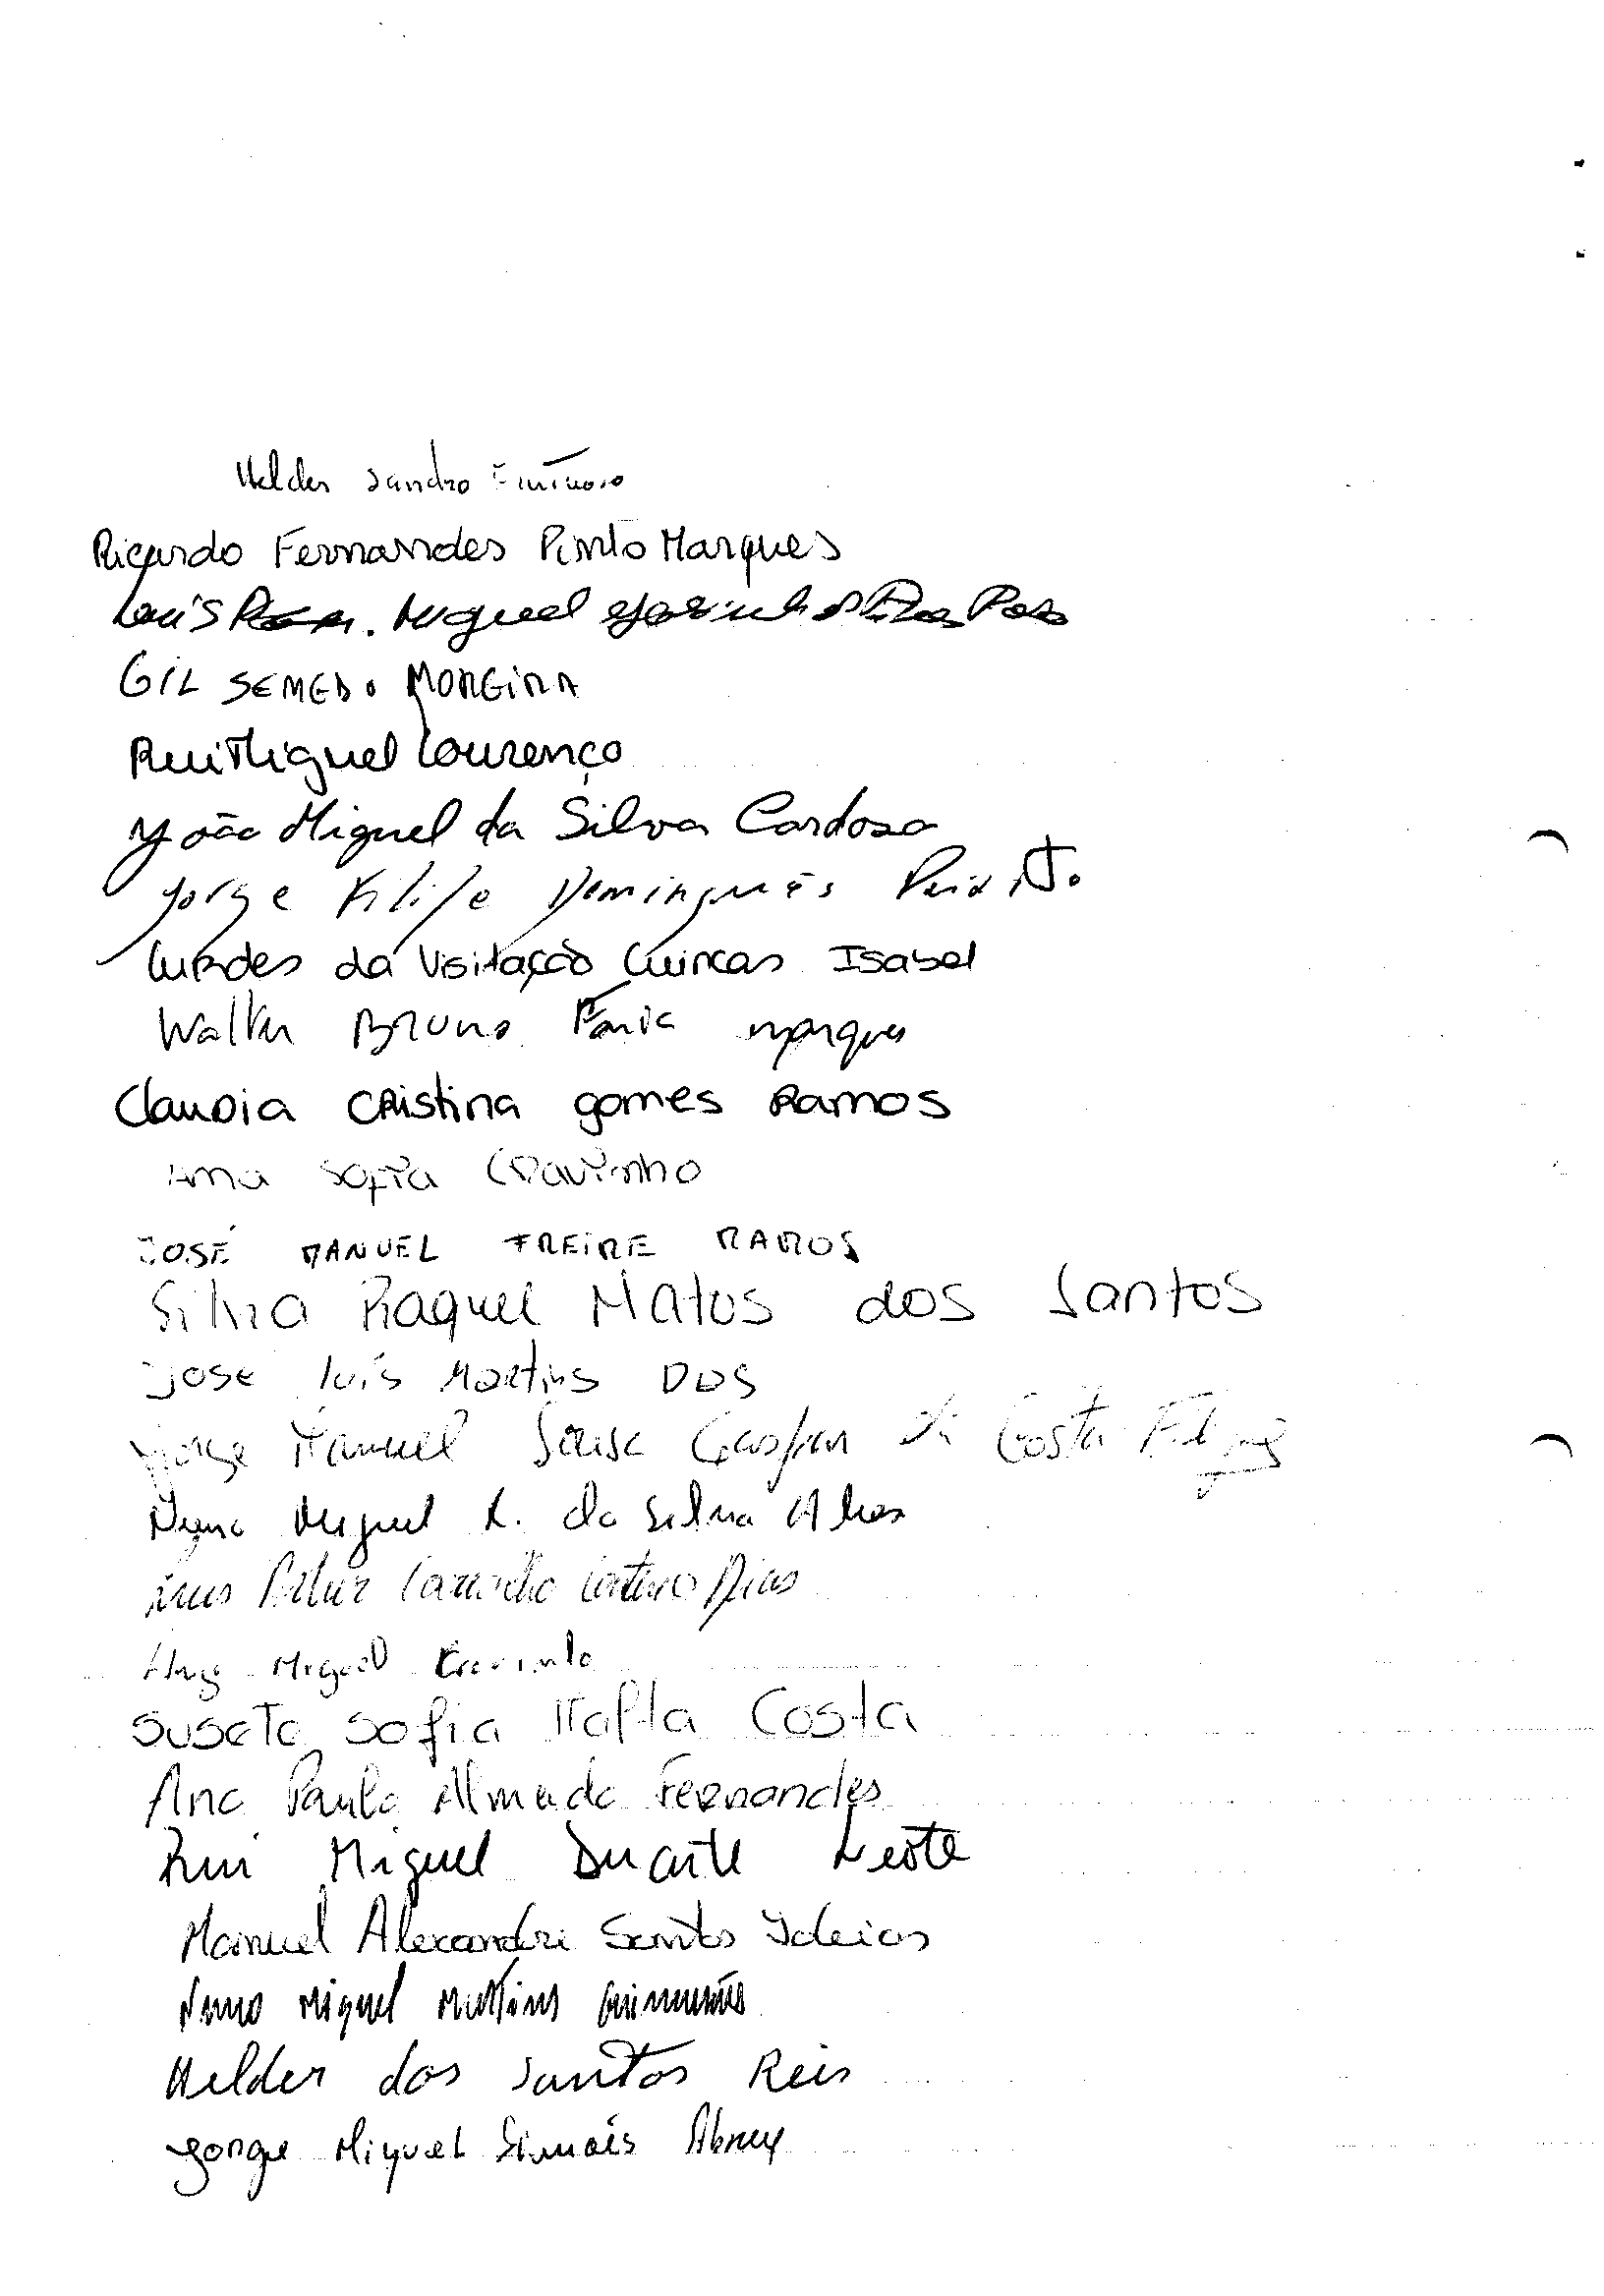 Helder Sandro
Ricardo Fernandes Pinto Marques
Luís Miguel
GIL SEMEDO MOREIRA
Rui Miguel Lourenço
João Miguel da Silva Cardoso
Jorge Filipe Domingues
Lurdes da Visitação Quincas Isabel
Walter Bruno Faria Marques
Claudia Cristina Gomes Ramos
Ana Sofia Cravinho
JOSÉ MANUEL FREIRE RAMOS
Silvia Raquel Matos dos Santos
José Luís Martins Dos
Jorge Manuel Sousa Gaspar da Costa
Nuno Miguel R. da Silva Alves
Dias
Hugo Miguel
Susete Sofia Mafta Costa
Ana Paula Almada Fernandes
Rui Miguel Duarte Leote
Manuel Alexandre Santos Ideias
Nuno Miguel Martins Guimarães
Helder dos Santos Reis
Jorge Miguel Simões Abreu